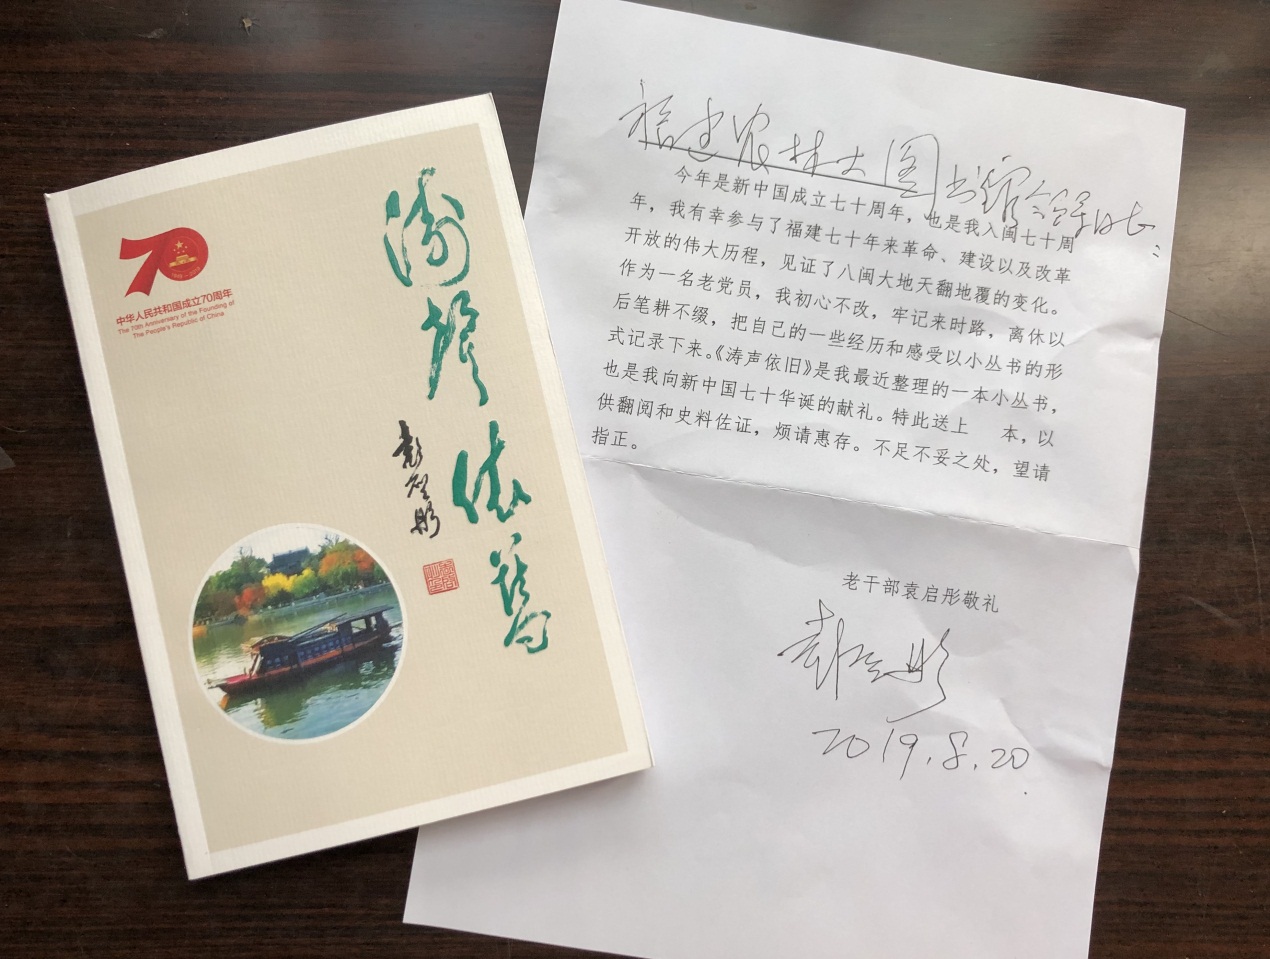 70
1949-2019
中华人民共和国成立70周年
The 70th Anniversary of the Founding of
The People's Republic of China
濤聲依舊
袁啓彤
福建农林大图书馆
今年是新中国成立七十周年，也是我入闽七十周
年，我有幸参与了福建七十年来革命、建设以及改革
开放的伟大历程，见证了八闽大地天翻地覆的变化。
作为一名老党员，我初心不改，牢记来时路，离休以
后笔耕不缀，把自己的一些经历和感受以小丛书的形
式记录下来。《涛声依旧》是我最近整理的一本小丛书，
也是我向新中国七十华诞的献礼。特此送上　本，以
供翻阅和史料佐证，烦请惠存。不足不妥之处，望请
指正。
老干部袁启彤敬礼
袁启彤
2019.8.20